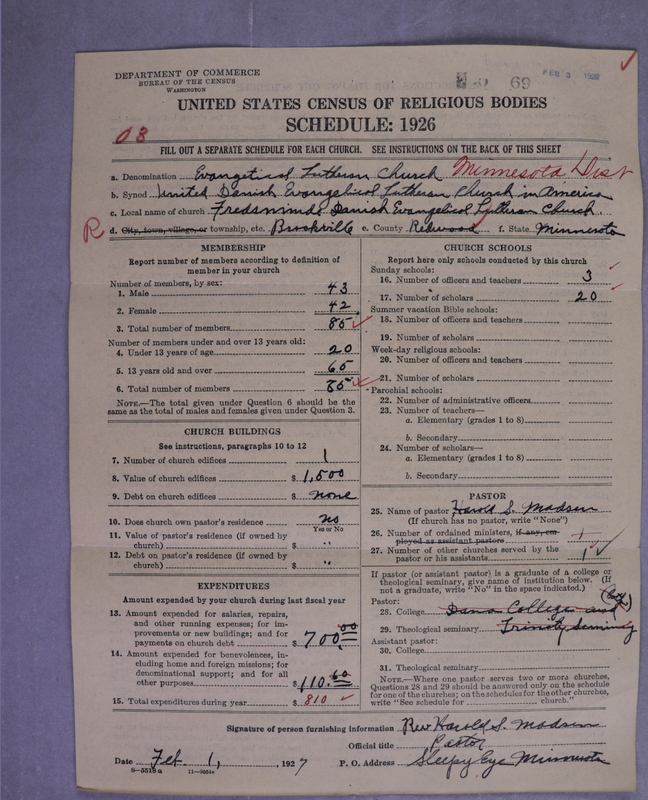 DEPARTMENT OF COMMERCE
BUREAU OF THE CENSUS
WASHINGTON
69
FEB 3
UNITED STATES CENSUS OF RELIGIOUS BODIES
SCHEDULE: 1926
08
FILL OUT A SEPARATE SCHEDULE FOR EACH CHURCH. SEE INSTRUCTIONS ON THE BACK OF THIS SHEET
a. Denomination Evangelical Lutheran Church Minnesota Dist
b. Synod United Danish Evangelical Lutheran Church in America
c. Local name of church Fredsminde Danish Evangelical Lutheran Church
R d. City, town, village, or township, etc. Brookville e. County Redwood f. State Minnesota
MEMBERSHIP
Report number of members according to definition of
member in your church
Number of members, by sex:
1. Male 43
2. Female 42
3. Total number of members 85
Number of members under and over 13 years old:
4. Under 13 years of age 20
5. 13 years old and over 65
6. Total number of members 85
NOTE.—The total given under Question 6 should be the
same as the total of males and females given under Question 3.
CHURCH BUILDINGS
See instructions, paragraphs 10 to 12
7. Number of church edifices 1
8. Value of church edifices $ 1,500
9. Debt on church edifices $ none
10. Does church own pastor's residence no
Yes or No
11. Value of pastor's residence (if owned by
church) $ "
12. Debt on pastor's residence (if owned by
church) $ "
EXPENDITURES
Amount expended by your church during last fiscal year
13. Amount expended for salaries, repairs,
and other running expenses; for im-
provements or new buildings; and for
payments on church debt $ 700.00
14. Amount expended for benevolences, in-
cluding home and foreign missions; for
denominational support; and for all
other purposes $ 110.60
15. Total expenditures during year $ 810
CHURCH SCHOOLS
Report here only schools conducted by this church
Sunday schools:
16. Number of officers and teachers 3
17. Number of scholars 20
Summer vacation Bible schools:
18. Number of officers and teachers
19. Number of scholars
Week-day religious schools:
20. Number of officers and teachers
21. Number of scholars
Parochial schools:
22. Number of administrative officers
23. Number of teachers—
a. Elementary (grades 1 to 8)
b. Secondary
24. Number of scholars—
a. Elementary (grades 1 to 8)
b. Secondary
PASTOR
25. Name of pastor Harold S. Madsen
(If church has no pastor, write "None")
26. Number of ordained ministers, if any, em-
ployed as assistant pastors 1
27. Number of other churches served by the
pastor or his assistants 1
If pastor (or assistant pastor) is a graduate of a college or
theological seminary, give name of institution below. (If
not a graduate, write "No" in the space indicated.)
Pastor:
28. College Dana College and
29. Theological seminary Trinity Seminary
Assistant pastor:
30. College
31. Theological seminary
NOTE.—Where one pastor serves two or more churches,
Questions 28 and 29 should be answered only on the schedule
for one of the churches; on the schedules for the other churches,
write "See schedule for church."
Signature of person furnishing information Rev Harold S. Madsen
Official title Pastor
Date Feb. 1, 1927 P. O. Address Sleepy Eye Minnesota
8-5518a 11-9054a